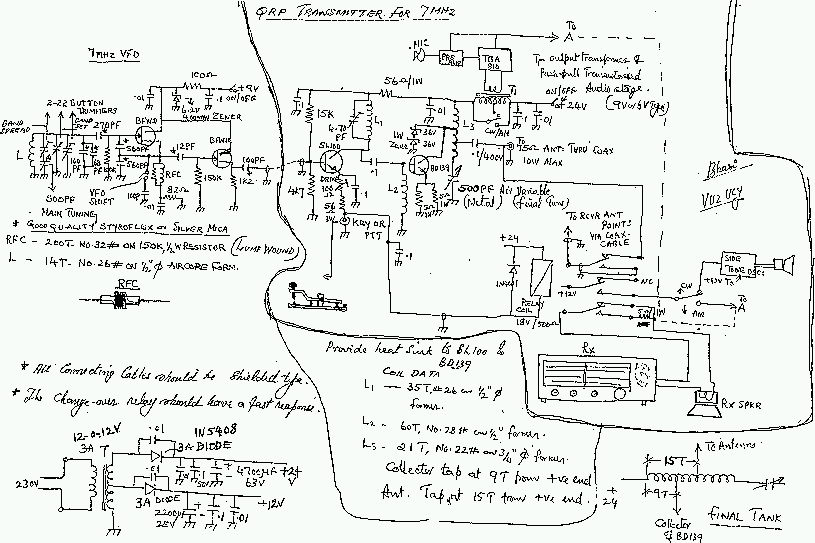 QRP TRANSMITTER FOR 7MHz
7MHz VFO
2-22 BUTTON
TRIMMERS
BAND
SPREAD
BAND
SET
270PF
BFW10
100Ω
.01
6.2V
400mW ZENER
.1
+9V
ON/OFF
L
100
PF
560PF
560PF
12PF
BFW10
100PF
RFC
82Ω
150K
1K2
.01
500PF
MAIN TUNING
VFO
SHIFT
* GOOD QUALITY STYROFLUX OR SILVER MICA
RFC - 200T NO.32# ON 150K, ½W RESISTOR (JUMBLE WOUND)
L - 14T- NO.26# ON ½" Φ AIRCORE FORM.
RFC
* All Connecting Cables should be shielded type.
* The change-over relay should have a fast response.
12-0-12V
3A T
230V
.01
IN5408
3A DIODE
.01
3A DIODE
4700µF
63V
+24
V
50V
+12V
2200µF
25V
.1
.01
MIC
PRE
AMP
TBA
810
T1
To
A
T1 → output Transformer of
Push-pull Transistorised
Audio stage.
(9V or 6V Type)
ON/OFF
24V
56Ω/1W
.1
15K
4-70
PF
L1
.01
L3
CW/AM
.1
.01
SL100
DRIVE
100
Ω
56
4K7
.1
1W
Zener
36V
36V
BD139
L2
.1/400V
75Ω ANT THRU COAX
10W MAX
500PF Air Variable
(Metal) (final Tuning)
KEY OR
PTT
.1
Bharti
VU2 VCY
To RCVR ANT
POINTS
VIA COAX-
CABLE
+24
IN4001
RELAY
COIL
18V/500Ω
+12V
NC
CW
AM
1W
SIDE
TONE OSC.
+12V To
To
A
Rx
Rx SPKR
Provide heat sink to SL100 &
BD139
COIL DATA
L1 - 35T, #26 on ½" Φ
former.
L2 - 60T, No.28# on ½" former.
L3 - 21T, No.22# on ¾" Φ former.
Collector tap at 9T from +ve end
Ant. Tap at 15T from +ve end.
To Antenna
15T
9T
+
24
Collector
of BD139
FINAL TANK